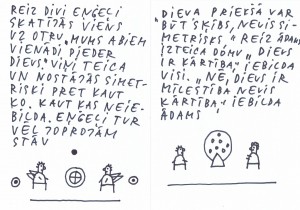 REIZ DIVI EŅĢELI
SKATĪJĀS VIENS
UZ OTRU. „MUMS ABIEM
VIENĀDI PIEDER
DIEVS,” VIŅI TEICA
UN NOSTĀJĀS SIMET-
RISKI PRET KAUT
KO. KAUT KAS NEIE-
BILDA. EŅĢELI TUR
VĒL JOPROJĀM
STĀV
„DIEVA PRIEKŠĀ VAR
BŪT ŠĶĪBS, NEVIS SI-
METRISKS” REIZ ĀDAMS
IZTEICA DOMU. „DIEVS
IR KĀRTĪBA,” IEBILDA
VISI. „NE, DIEVS IR
MĪLESTĪBA NEVIS
KĀRTĪBA” IEBILDA
ĀDAMS